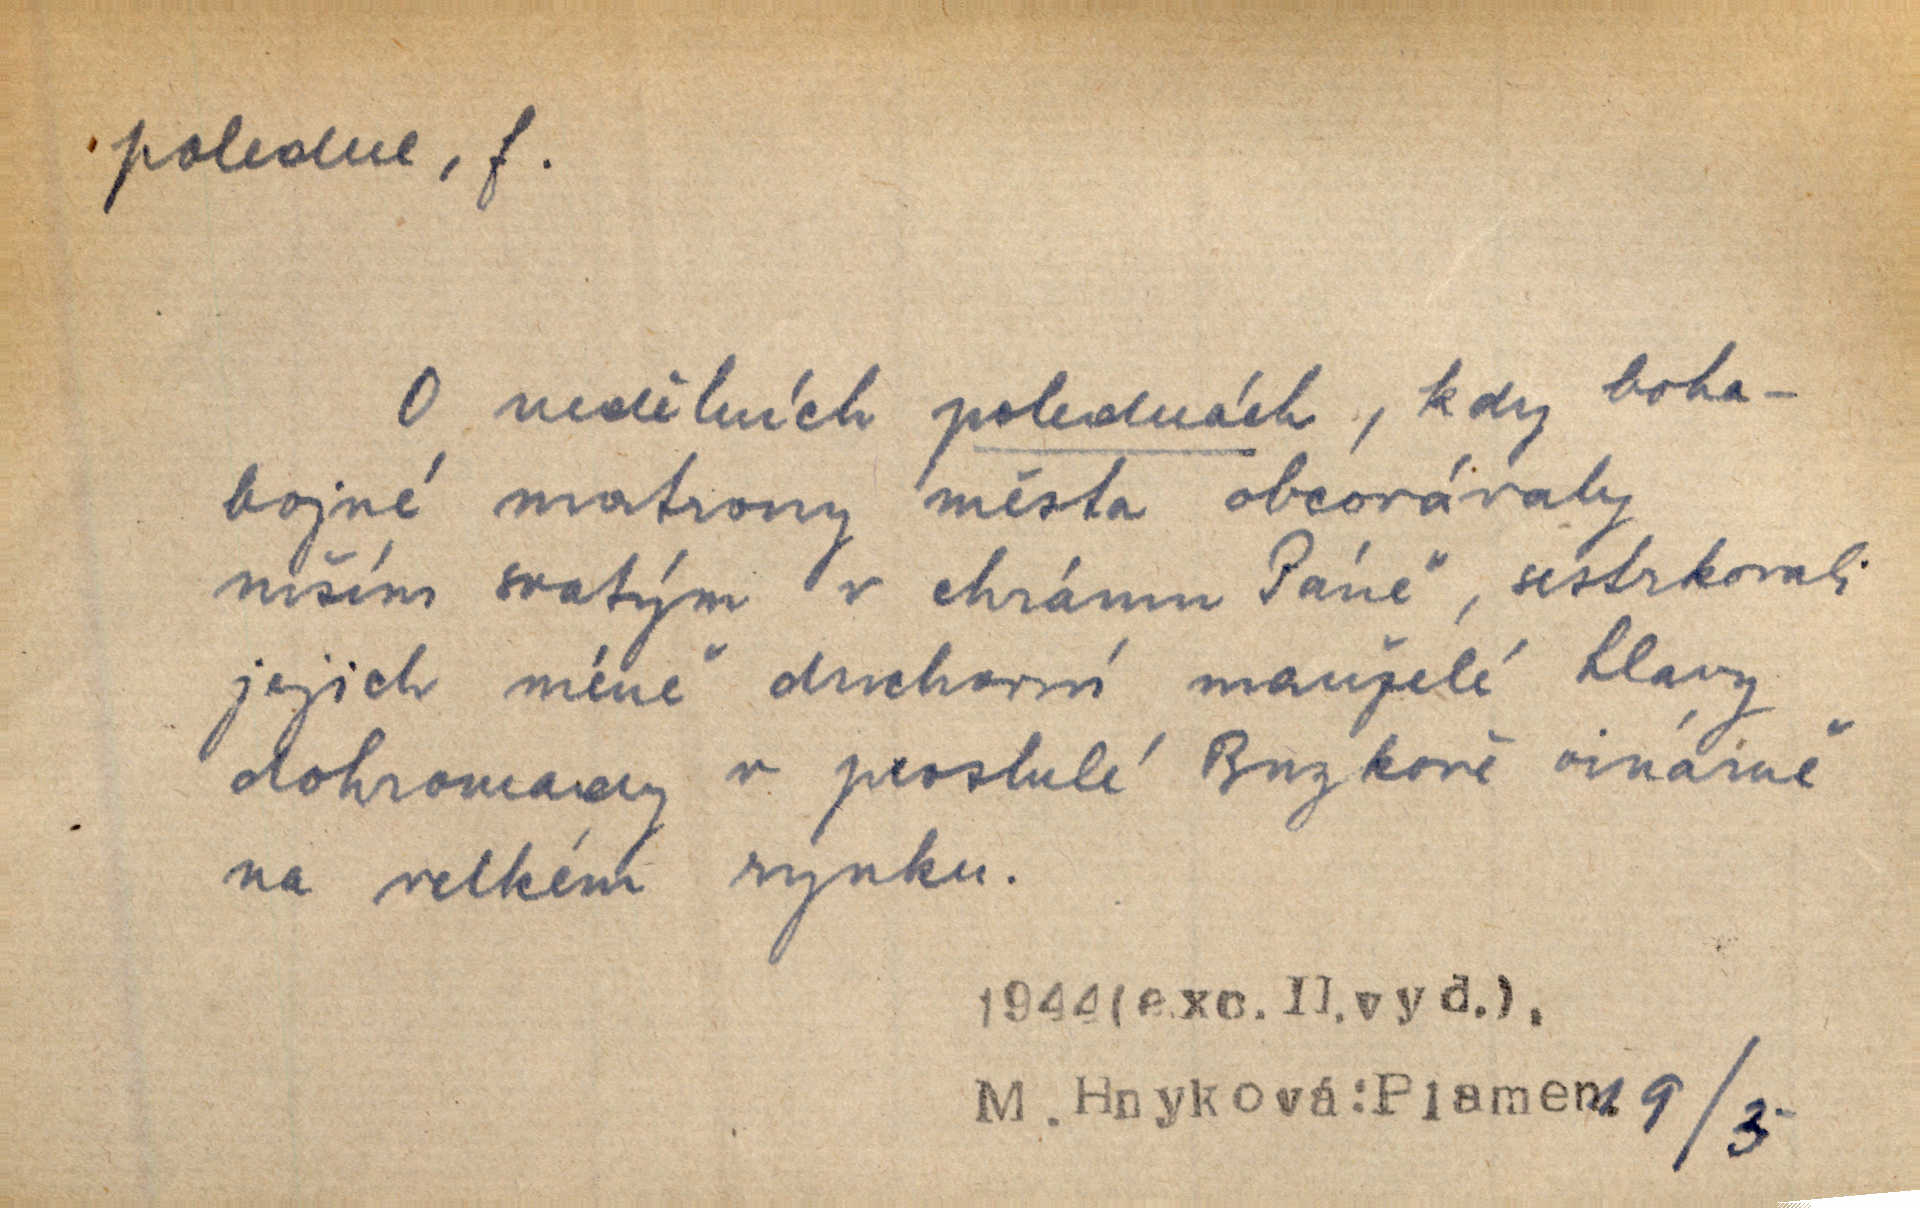 poledne, f.
O nedělních polednách, kdy boha-
bojné matrony města obcovávaly
mším svatým v chrámu Páně, sestrkovali
jejich méně duchovní manželé hlavy
dohromady v proslulé Buzkově vinárně
na velkém rynku.
1944(exc. II.vyd.).
M. Hnyková:Plamen
19/3